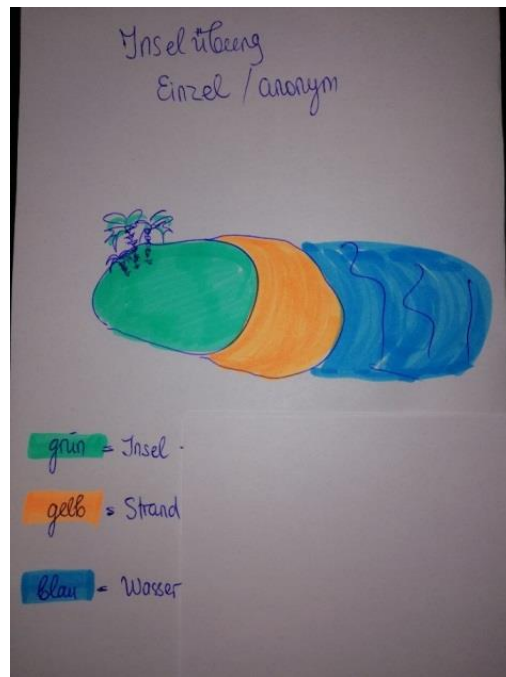 Inselübung
Einzel / anonym
grün = Insel
gelb = Strand
blau = Wasser